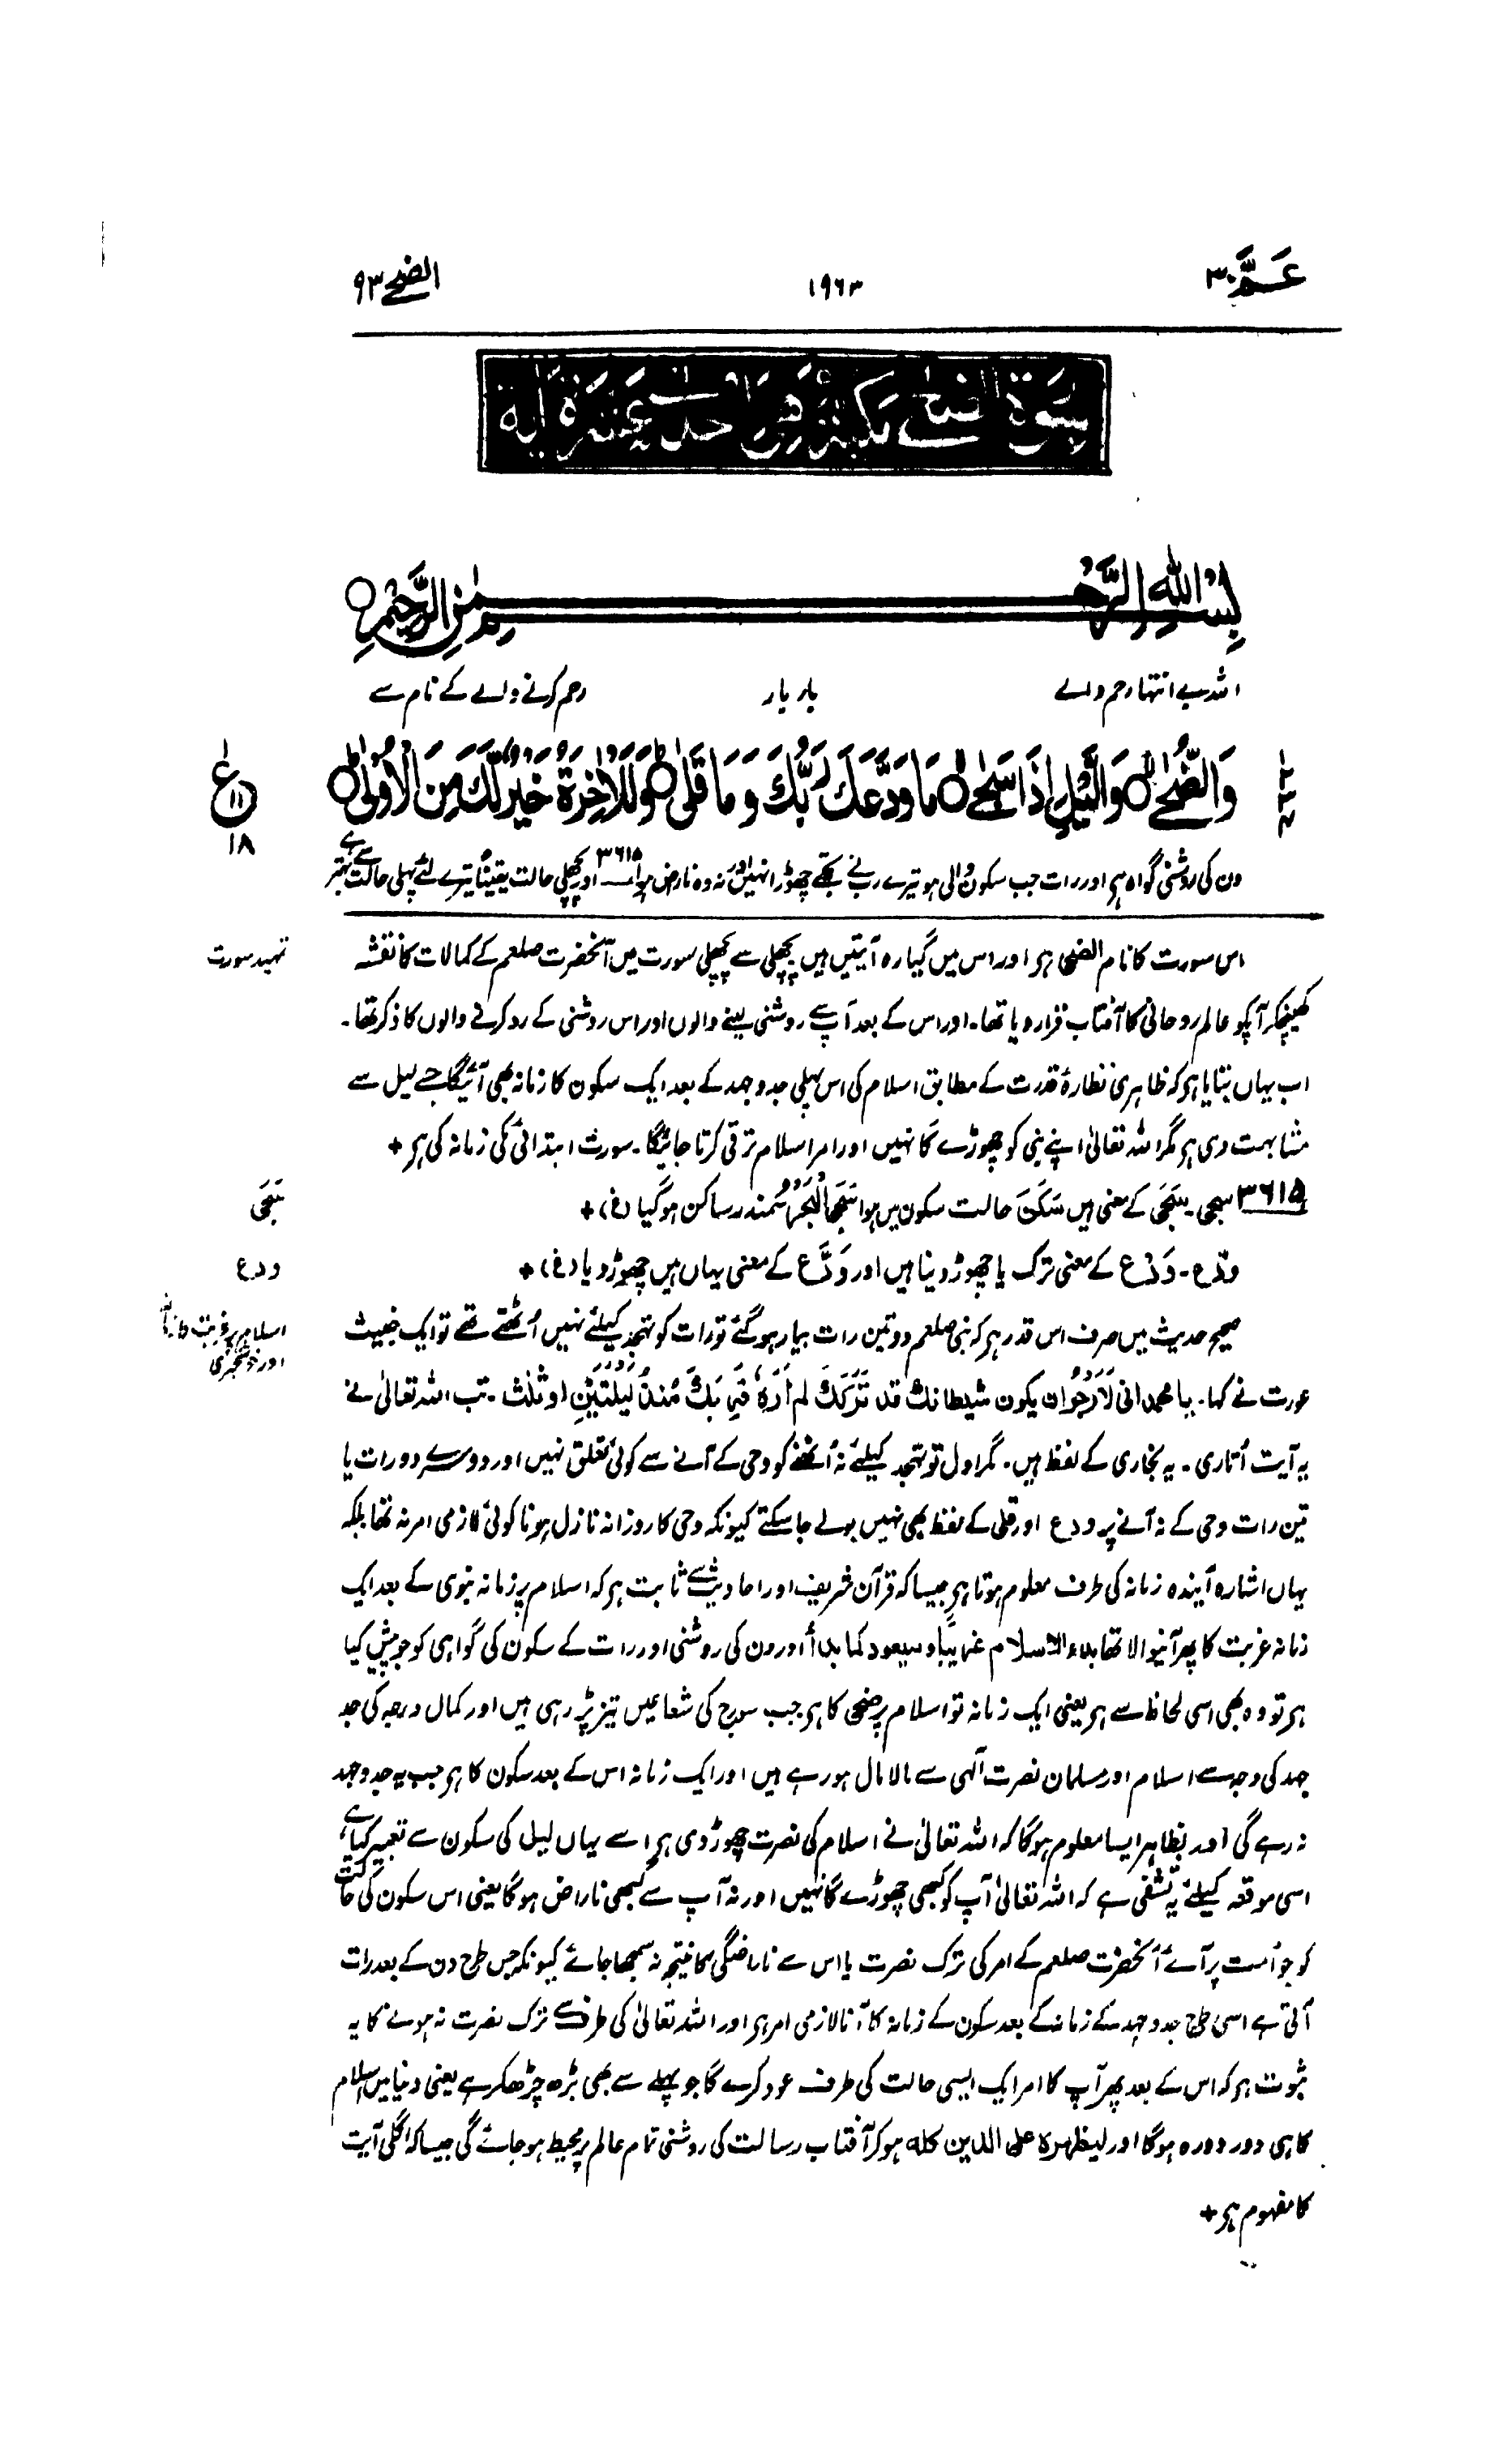 عَمَّ ۳۰
۱۹۶۳
الضحیٰ ۹۳
سورۃ الضحیٰ مکیۃ وھی احدیٰ عشرۃ ایۃ
بِسْمِ اللّٰهِ الرَّحْمٰنِ الرَّحِيْمِ
اللہ بے انتہا رحم والے بار بار رحم کرنے والے کے نام سے
وَالضُّحٰى وَالَّيْلِ اِذَا سَجٰى مَا وَدَّعَكَ رَبُّكَ وَمَا قَلٰى وَلَلْاٰخِرَةُ خَيْرٌ لَّكَ مِنَ الْاُوْلٰى
ع ۱۱ ۱۸
دن کی روشنی گواہ ہو اور رات جب سکون والی ہو تیرے رب نے تجھے چھوڑا نہیں اور نہ وہ ناراض ہوا ۳۶۱۵ اور پچھلی حالت یقیناً تیرے لئے پہلی حالت سے بہتر ہے
تمہید سورت
اس سورت کا نام الضحیٰ ہو اور اس میں گیارہ آیتیں ہیں پچھلی سے پچھلی سورت میں آنحضرت صلعم کے کمالات کا نقشہ
کھینچکر آپکو عالم روحانی کا آفتاب قرار دیا تھا۔ اور اس کے بعد آپ سے روشنی لینے والوں اور اس روشنی کے رد کرنے والوں کا ذکر تھا۔
اب یہاں بتایا ہو کہ ظاہری نظارۂ قدرت کے مطابق اسلام کی اس پہلی جدوجہد کے بعد ایک سکون کا زمانہ بھی آئیگا جسے لیل سے
مشابہت دی ہو مگر اللہ تعالیٰ اپنے نبی کو چھوڑے گا نہیں اور امر اسلام ترقی کرتا جائیگا۔ سورت ابتدائی مکی زمانہ کی ہو +
سَجَی
۳۶۱۵ سجی۔ سَجَی کے معنی ہیں سَکَنَ حالت سکون میں ہوا سَجَی الْبَحْرُ سمندر ساکن ہوگیا (غ) +
ودع
ودّع۔ وَدْع کے معنی ترک یا چھوڑ دینا ہیں اور وَدَّعَ کے معنی یہاں ہیں چھوڑ دیا (غ) +
اسلام پر غربت کا زمانہ
اور خوشخبری
صحیح حدیث میں صرف اس قدر ہو کہ نبی صلعم دو تین رات بیمار ہوگئے تو رات کو تہجد کیلئے نہیں اُٹھتے تھے تو ایک خبیث
عورت نے کہا۔ یا محمد انی لَاَرْجُوْ ان یکون شیطانك قد تَرَكَكَ لم اَرَهٗ قَرِبَكَ مُنذُ لَيْلَتَيْنِ او ثلٰث۔ تب اللہ تعالیٰ نے
یہ آیت اُتاری۔ یہ بخاری کے لفظ ہیں۔ مگر اول تو تہجد کیلئے نہ اُٹھنے کو وحی کے آنے سے کوئی تعلق نہیں اور دوسرے دو رات یا
تین رات وحی کے نہ آنے پر ودع اور قلی کے لفظ بھی نہیں بولے جا سکتے کیونکہ وحی کا روزانہ نازل ہونا کوئی لازمی امر نہ تھا بلکہ
یہاں اشارہ آیندہ زمانہ کی طرف معلوم ہوتا ہو جیسا کہ قرآن شریف اور احادیث سے ثابت ہو کہ اسلام پر زمانہ نبوی کے بعد ایک
زمانہ غربت کا پھر آنیوالا تھا بدء الاسلام غریبًا و سیعود کما بدأ اور دن کی روشنی اور رات کے سکون کی گواہی کو جو پیش کیا
ہو تو وہ بھی اسی لحاظ سے ہو یعنی ایک زمانہ تو اسلام پر ضحیٰ کا ہو جب سورج کی شعاعیں تیز پڑ رہی ہیں اور کمال درجہ کی جد
جہد کی وجہ سے اسلام اور مسلمان نصرت الٰہی سے مالا مال ہو رہے ہیں اور ایک زمانہ اس کے بعد سکون کا ہو جب یہ جدوجہد
نہ رہے گی اور بظاہر ایسا معلوم ہوگا کہ اللہ تعالیٰ نے اسلام کی نصرت چھوڑ دی ہو اسے یہاں لیل کی سکون سے تعبیر کیا ہے،
اسی موقعہ کیلئے یہ تشفی ہے کہ اللہ تعالیٰ آپ کو کبھی چھوڑے گا نہیں اور نہ آپ سے کبھی ناراض ہوگا یعنی اس سکون کی حالت
کو جو اُمت پر آئے آنحضرت صلعم کے امر کی ترک نصرت یا اس سے ناراضگی کا نتیجہ نہ سمجھا جائے کیونکہ جس طرح دن کے بعد رات
آتی ہے اسی طرح جدوجہد کے زمانہ کے بعد سکون کے زمانہ کا آنا لازمی امر ہو اور اللہ تعالیٰ کی طرف سے ترک نصرت نہ ہونے کا یہ
ثبوت ہو کہ اس کے بعد پھر آپ کا امر ایک ایسی حالت کی طرف عود کرے گا جو پہلے سے بھی بڑھ چڑھکر ہے یعنی دنیا میں اسلام
کا ہی دور دورہ ہوگا اور لیظہرہ علی الدین کلہ ہو کر آفتاب رسالت کی روشنی تمام عالم پر محیط ہو جائے گی جیسا کہ اگلی آیت
کا مفہوم ہو +